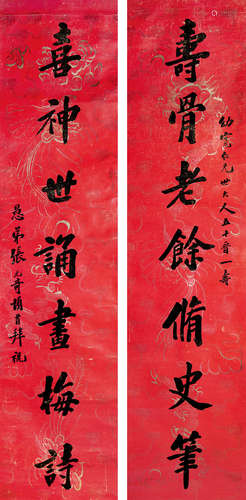 壽骨老餘脩史筆
喜神世誦畫梅詩
愚弟張元奇頓首拜祝